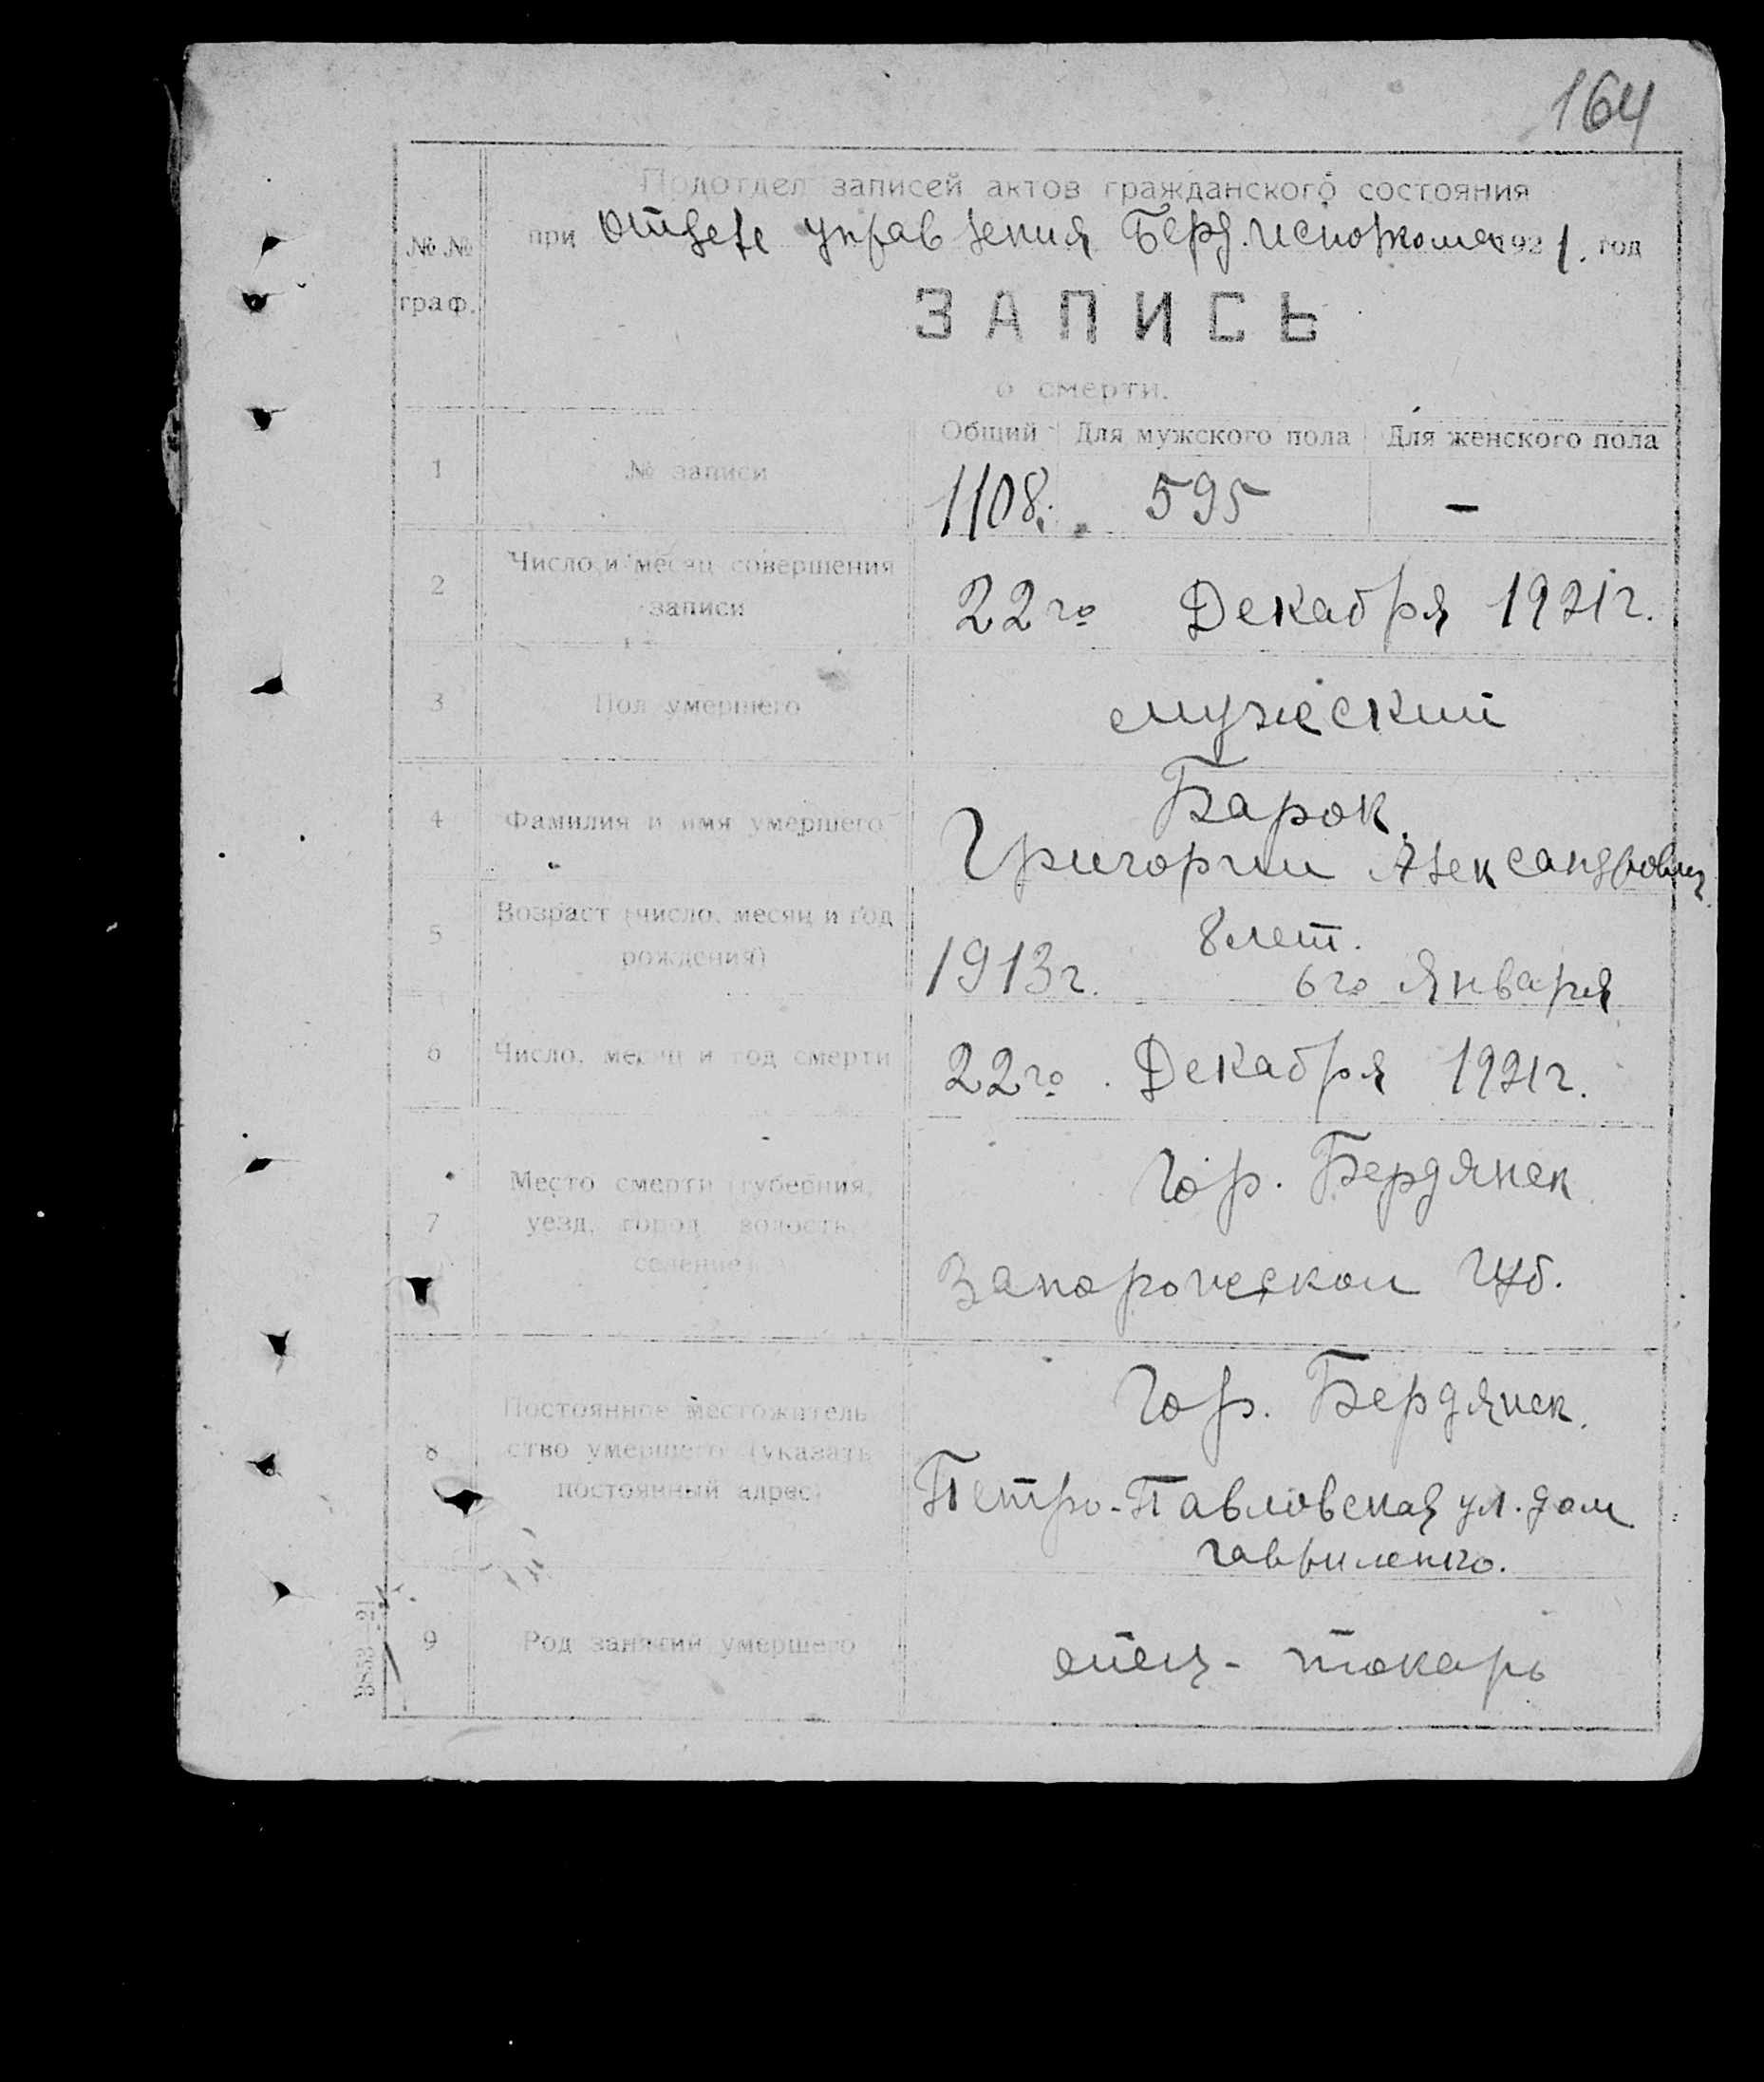 164
Подотдел записей актов гражданского состояния
при отделе управления Берд. исполкома 1921. год
№№ граф.
ЗАПИСЬ
о смерти.
Общий Для мужского пола Для женского пола
1 № записи 1108. 595 -
2 Число и месяц совершения записи 22го Декабря 1921г.
3 Пол умершего мужеский
4 Фамилия и имя умершего Барок.
Григории Александрович
5 Возраст (число, месяц и год рождения) 8 лет.
1913г. 6го Января
6 Число, месяц и год смерти 22го Декабря 1921г.
7 Место смерти (губерния, уезд, город, волость, селение) Гор. Бердянск
Запорожской Губ.
8 Постоянное местожитель
ство умершего (указать Гор. Бердянск.
постоянный адрес) Петро-Павловская ул. дом
Гавриленко.
9 Род занятий умершего отец - токарь